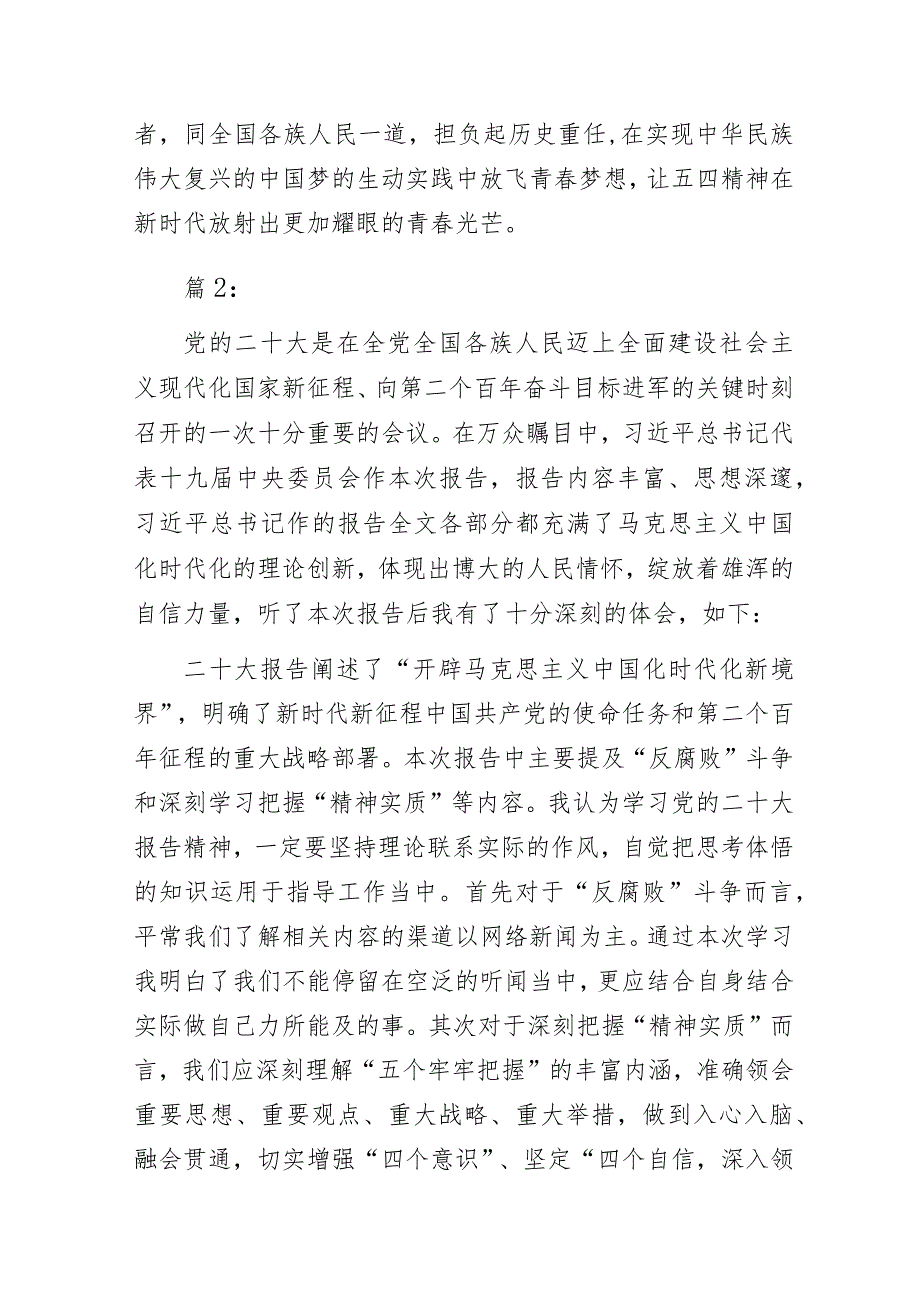 者，同全国各族人民一道，担负起历史重任,在实现中华民族
伟大复兴的中国梦的生动实践中放飞青春梦想，让五四精神在
新时代放射出更加耀眼的青春光芒。
篇 2：
党的二十大是在全党全国各族人民迈上全面建设社会主
义现代化国家新征程、向第二个百年奋斗目标进军的关键时刻
召开的一次十分重要的会议。在万众瞩目中，习近平总书记代
表十九届中央委员会作本次报告，报告内容丰富、思想深邃，
习近平总书记作的报告全文各部分都充满了马克思主义中国
化时代化的理论创新，体现出博大的人民情怀，绽放着雄浑的
自信力量，听了本次报告后我有了十分深刻的体会，如下：
二十大报告阐述了“开辟马克思主义中国化时代化新境
界”，明确了新时代新征程中国共产党的使命任务和第二个百
年征程的重大战略部署。本次报告中主要提及“反腐败”斗争
和深刻学习把握“精神实质”等内容。我认为学习党的二十大
报告精神，一定要坚持理论联系实际的作风，自觉把思考体悟
的知识运用于指导工作当中。首先对于“反腐败”斗争而言，
平常我们了解相关内容的渠道以网络新闻为主。通过本次学习
我明白了我们不能停留在空泛的听闻当中，更应结合自身结合
实际做自己力所能及的事。其次对于深刻把握“精神实质”而
言，我们应深刻理解“五个牢牢把握”的丰富内涵，准确领会
重要思想、重要观点、重大战略、重大举措，做到入心入脑、
融会贯通，切实增强“四个意识”、坚定“四个自信，深入领